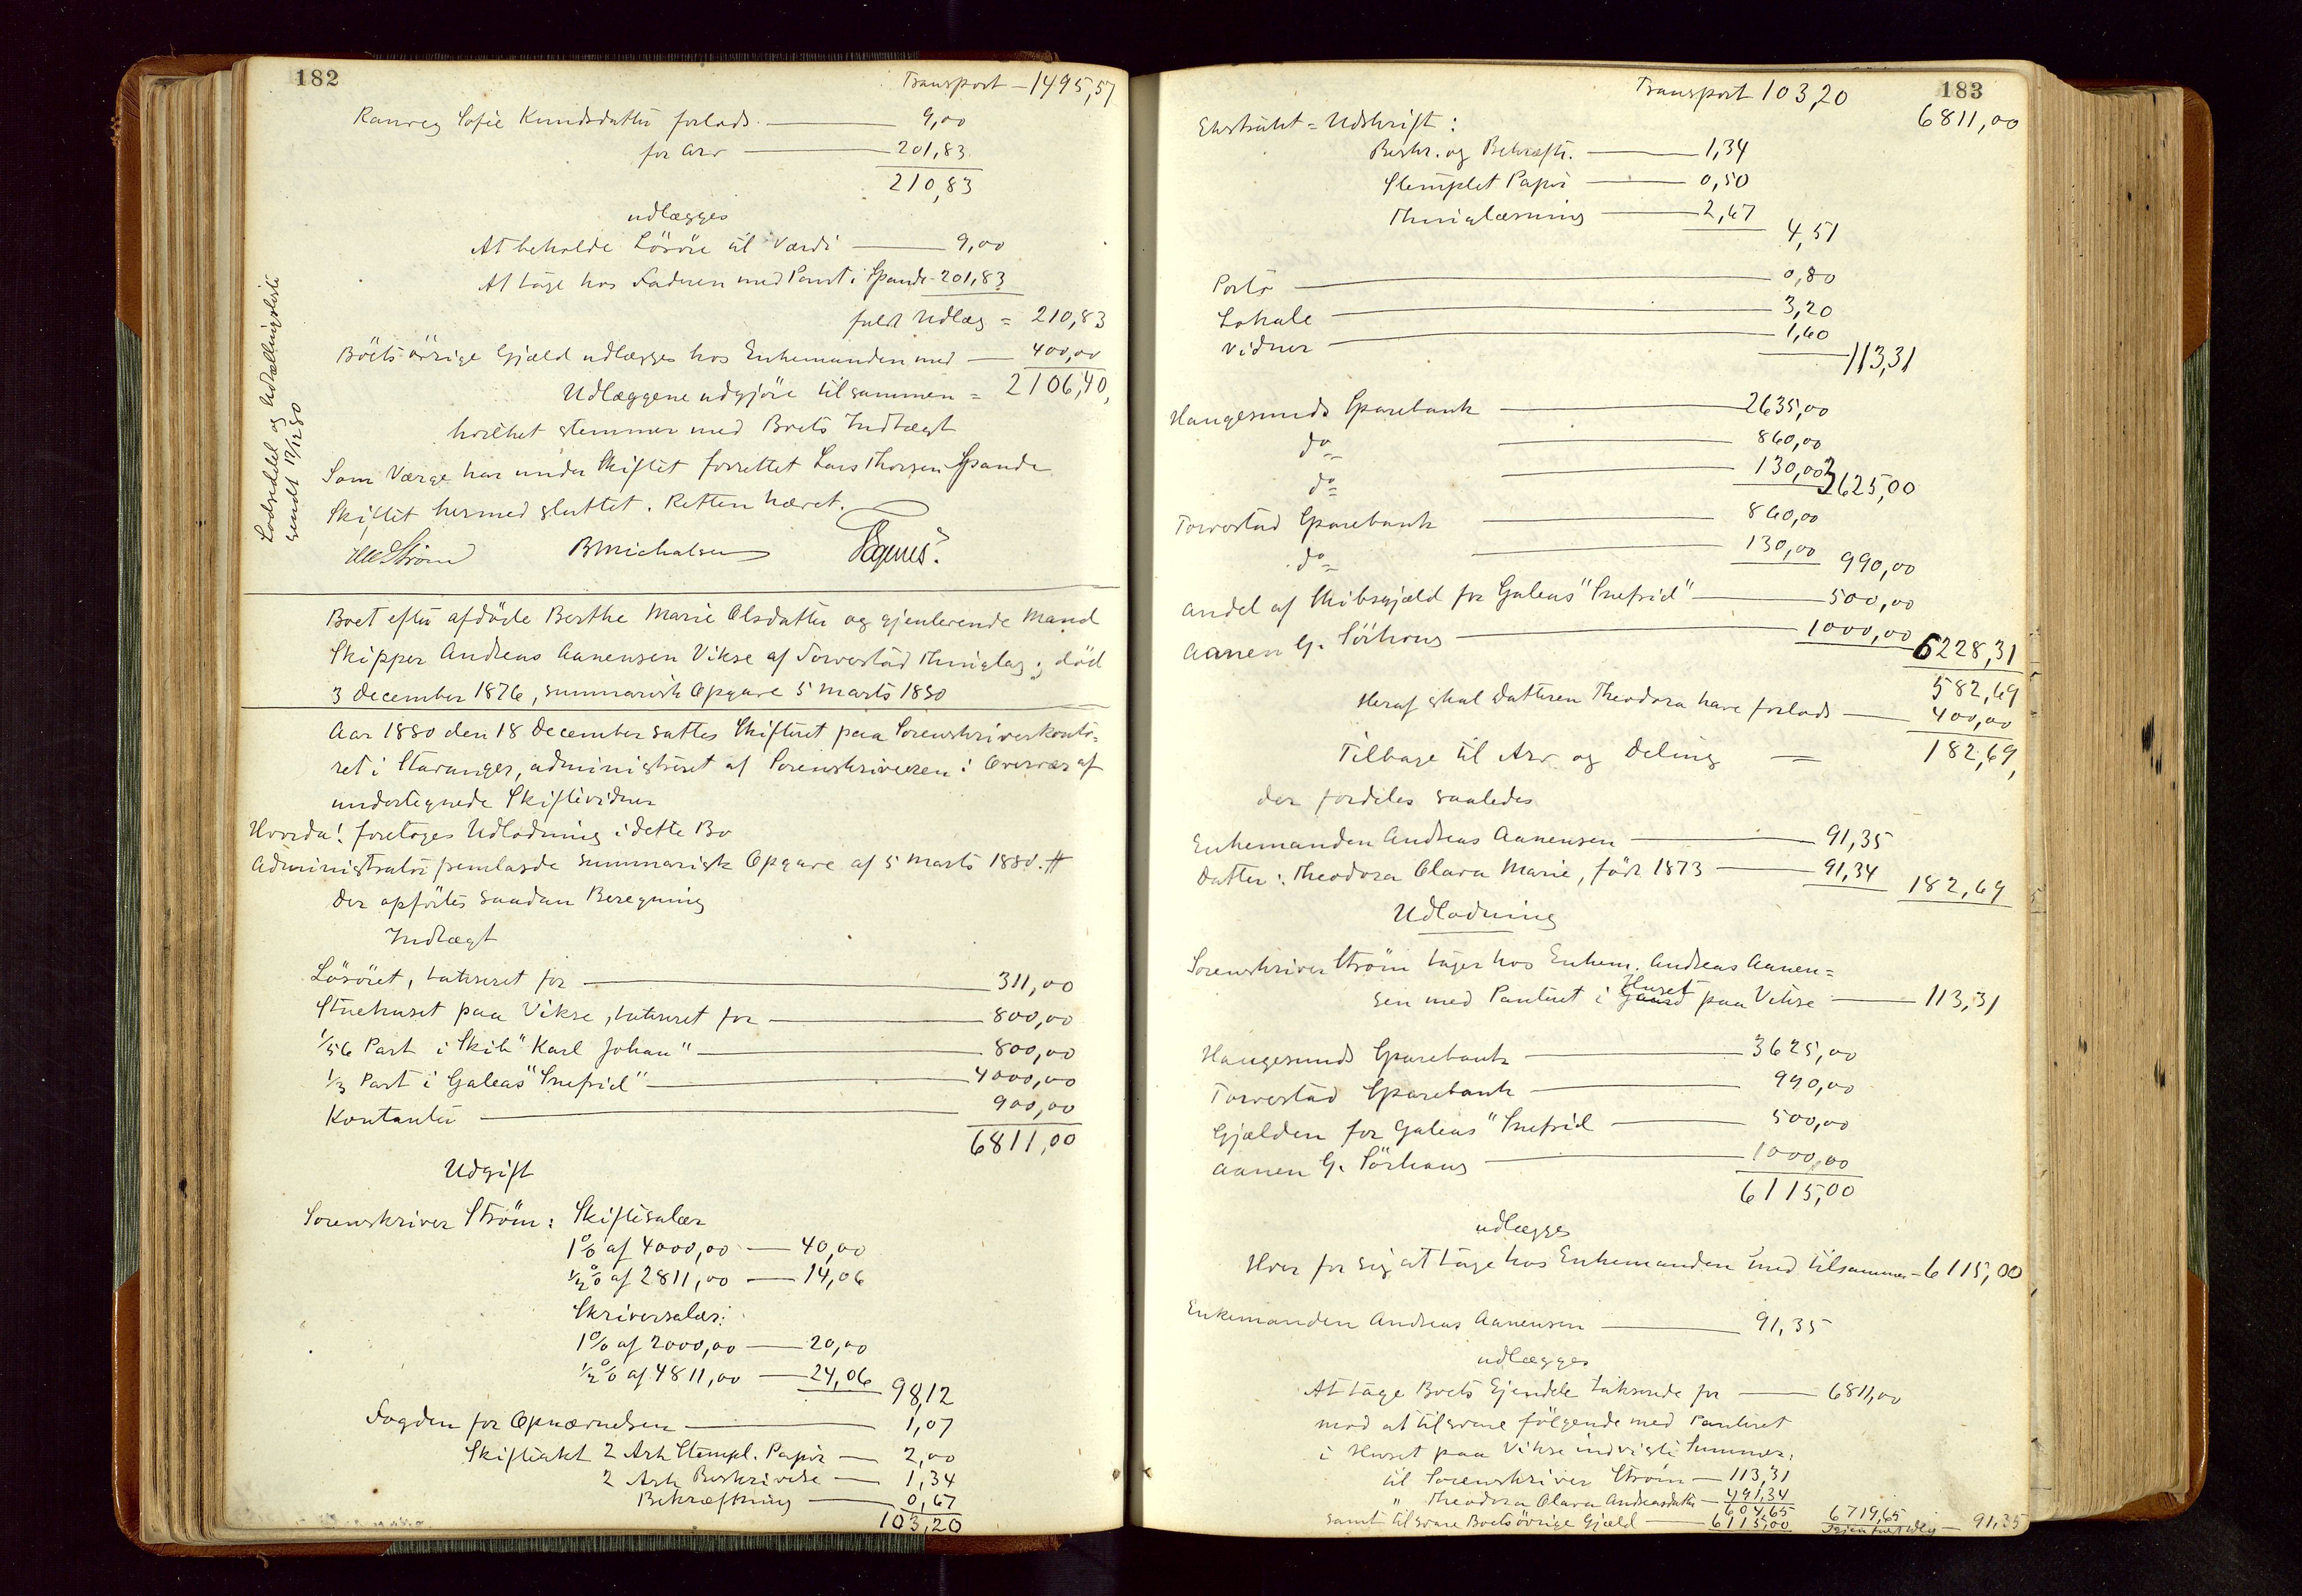 182
Transport — 1495,57
Ranveg Sofie Knudsdatter forlods — 9,00
for Arv — 201,83
210,83
udlægges
At beholde Lösöre til Værdi — 9,00
At tage hos Faderen med Pant i Spande 201,83
fuldt Udlæg = 210,83
Boets övrige Gjæld udlægges hos Enkemanden med — 400,00
Udlæggene udgjöre tilsammen = 2106,40,
hvilket stemmer med Boets Indtægt
Som Værge har under Skiftet forrettet Lars Thorsen Spande
Skiftet hermed sluttet. Retten hævet.
Ström BMichalsen
Lodseddel og Udtællingsliste
sendt 17/12 80
Boet efter afdöde Berthe Marie Olsdatter og gjenlevende Mand
Skipper Andreas Aanensen Vikse af Torvestad Thinglag; död
3 December 1876, summarisk Opgave 5 Marts 1880
Aar 1880 den 18 December sattes Skifteret paa Sorenskriverkonto=
ret i Stavanger, administreret af Sorenskriveren i Overvær af
undertegnede Skiftevidner
Hvorda! foretoges Udlodning i dette Bo
Administrator fremlagde summarisk Opgave af 5 Marts 1880. #
Der opförtes saadan Beregning
Indtægt
Lösöret, takseret for — 311,00
Stuehuset paa Vikse, takseret for — 800,00
1/56 Part i Skib "Karl Johan" — 800,00
1/3 Part i Galeas "Snefrid" — 4000,00
Kontanter — 900,00
6811,00
Udgift
Sorenskriver Ström: Skiftesalær
1% af 4000,00 — 40,00
1/2% af 2811,00 — 14,06
Skriversalær:
1% af 2000,00 — 20,00
1/2% af 4811,00 — 24,06 98,12
Fogden for Opnævnelsen — 1,07
Skifteakt 2 Ark Stempl. Papir — 2,00
2 Ark Beskrivelse — 1,34
Bekræftning — 0,67
103,20
183
Transport 103,20
6811,00
Ekstrakt=Udskrift:
Beskr. og Bekræft. — 1,34
Stemplet Papir — 0,50
Thinglæsning — 2,67 4,51
Porto — 0,80
Lokale — 3,20
Vidner — 1,60 113,31
Haugesunds Sparebank — 2635,00
do — 860,00
do — 130,00 3625,00
Torvestad Sparebank — 860,00
do — 130,00 990,00
Andel af Skibsgjæld for Galeas "Snefrid" — 500,00
Aanen G. Sörhaug — 1000,00 6228,31
582,69
Heraf skal Datteren Theodora have forlods — 400,00
Tilbage til Arv og Deling — 182,69,
der fordeles saaledes
Enkemanden Andreas Aanensen — 91,35
Datter: Theodora Olava Marie, födt 1873 — 91,34 182,69
Udlodning
Sorenskriver Ström tager hos Enkem. Andreas Aanen=
sen med Panteret i Gaard Huset paa Vikse — 113,31
Haugesunds Sparebank — 3625,00
Torvestad Sparebank — 990,00
Gjælden for Galeas "Snefrid — 500,00
Aanen G. Sörhaug — 1000,00
6115,00
udlægges
Hver for sig at tage hos Enkemanden med tilsammen — 6115,00
Enkemanden Andreas Aanensen — 91,35
udlægges
At tage Boets Ejendele takserede for — 6811,00
mod at tilsvare fölgende med Panteret
i Huset paa Vikse indvigte Summer:
til Sorenskriver Ström — 113,31
" Theodora Olava Andreasdatter — 491,34
604,65
samt tilsvare Boets övrige Gjæld — 6115,00 6719,65
91,35